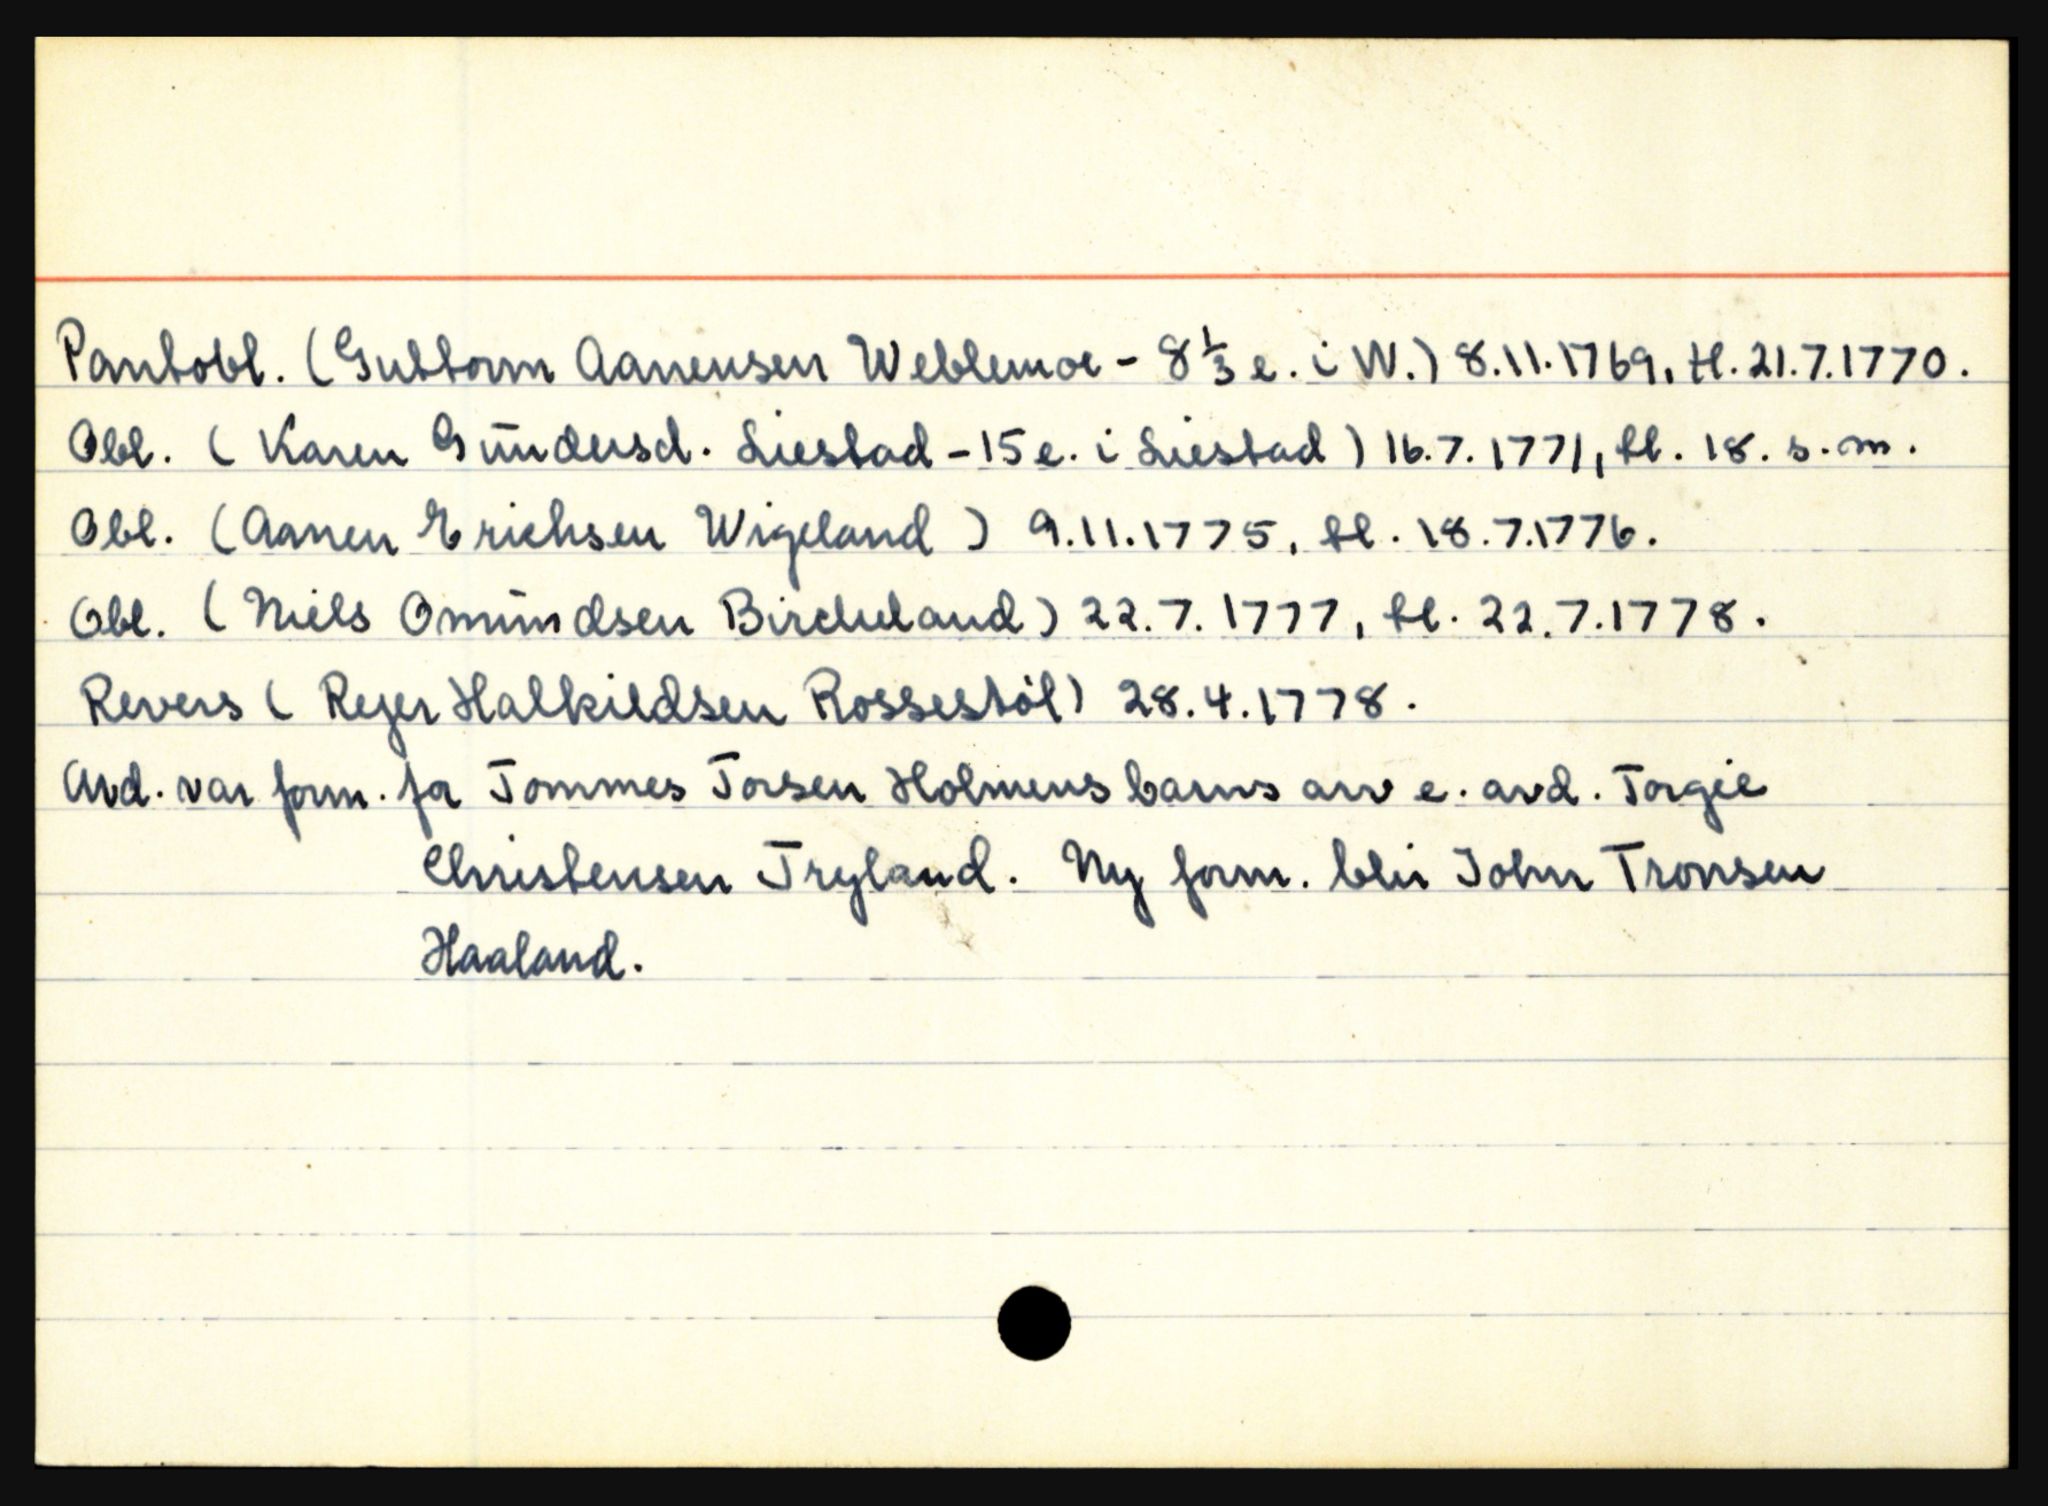 Pantobl. (Guttorm Aanensen Weblemoe - 8 1/3 e. i W.) 8.11.1769, tl. 21.7.1770.
Obl. ( Karen Gũndersd. Liestad - 15 e. i Liestad ) 16.7.1771, tl. 18. s. m.
Obl. (Aanen Erichsen Wigeland ) 9.11.1775, tl. 18.7.1776.
Obl. ( Niels Omũndsen Bircheland) 22.7.1777, tl. 22.7.1778.
Revers ( Reyer Halkildsen Rossestøl) 28.4.1778.
Avd. var form. for Tommes Torsen Holmens barns arv e. avd. Torgie
Christensen Tryland. Ny form. blir John Tronsen
Haaland.